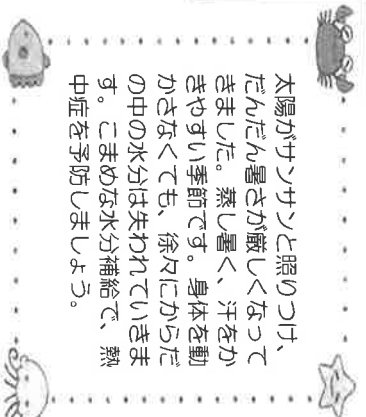 太陽がサンサンと照りつけ、
だんだん暑さが厳しくなって
きました。蒸し暑く、汗をか
きやすい季節です。身体を動
かさなくても、徐々にからだ
の中の水分は失われていきま
す。こまめな水分補給で、熱
中症を予防しましょう。